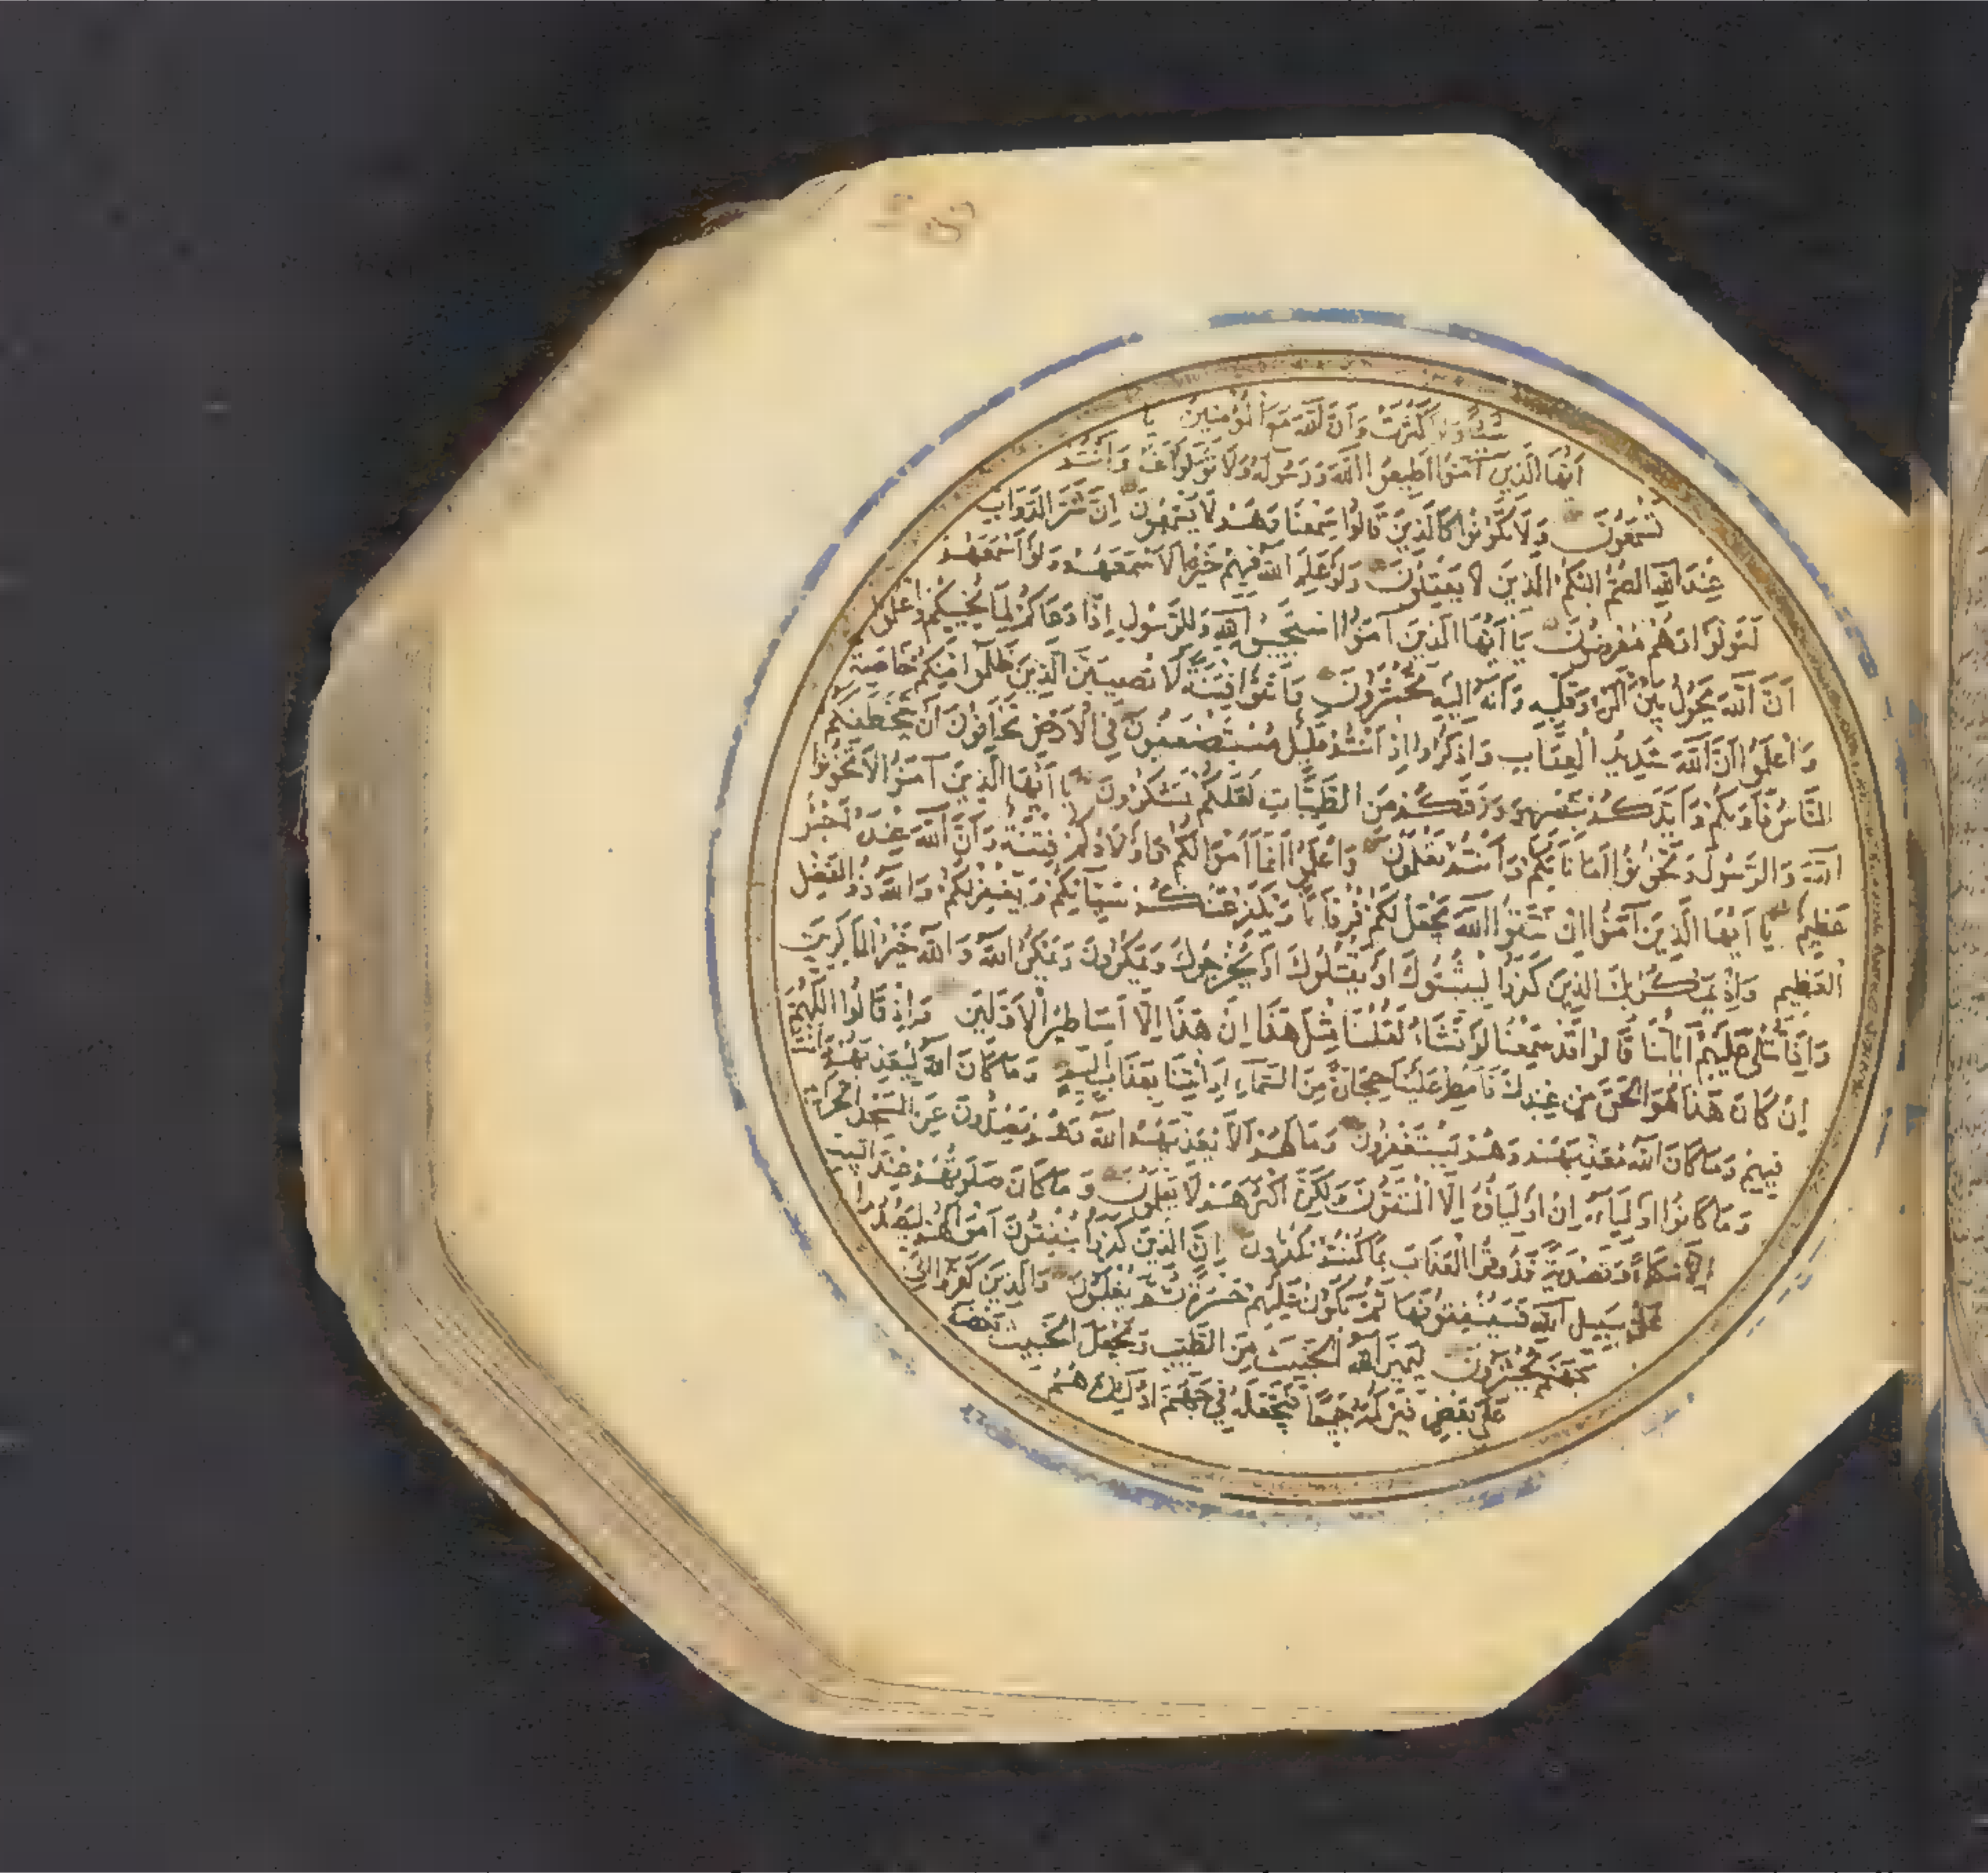 شَيْئًا وَلَوْ كَثُرَتْ وَاَنَّ اللّٰهَ مَعَ الْمُؤْمِنِينَ يَا
اَيُّهَا الَّذِينَ آمَنُوا اَطِيعُوا اللّٰهَ وَرَسُولَهُ وَلَا تَوَلَّوْا عَنْهُ وَاَنْتُمْ
تَسْمَعُونَ وَلَا تَكُونُوا كَالَّذِينَ قَالُوا سَمِعْنَا وَهُمْ لَا يَسْمَعُونَ اِنَّ شَرَّ الدَّوَابِّ
عِنْدَ اللّٰهِ الصُّمُّ الْبُكْمُ الَّذِينَ لَا يَعْقِلُونَ وَلَوْ عَلِمَ اللّٰهُ فِيهِمْ خَيْرًا لَاَسْمَعَهُمْ وَلَوْ اَسْمَعَهُمْ
لَتَوَلَّوْا وَهُمْ مُعْرِضُونَ يَا اَيُّهَا الَّذِينَ آمَنُوا اسْتَجِيبُوا لِلّٰهِ وَلِلرَّسُولِ اِذَا دَعَاكُمْ لِمَا يُحْيِيكُمْ وَاعْلَمُوا
اَنَّ اللّٰهَ يَحُولُ بَيْنَ الْمَرْءِ وَقَلْبِهِ وَاَنَّهُ اِلَيْهِ تُحْشَرُونَ وَاتَّقُوا فِتْنَةً لَا تُصِيبَنَّ الَّذِينَ ظَلَمُوا مِنْكُمْ خَاصَّةً
وَاعْلَمُوا اَنَّ اللّٰهَ شَدِيدُ الْعِقَابِ وَاذْكُرُوا اِذْ اَنْتُمْ قَلِيلٌ مُسْتَضْعَفُونَ فِي الْاَرْضِ تَخَافُونَ اَنْ يَتَخَطَّفَكُمُ
النَّاسُ فَآوٰيكُمْ وَاَيَّدَكُمْ بِنَصْرِهِ وَرَزَقَكُمْ مِنَ الطَّيِّبَاتِ لَعَلَّكُمْ تَشْكُرُونَ يَا اَيُّهَا الَّذِينَ آمَنُوا لَا تَخُونُوا
اللّٰهَ وَالرَّسُولَ وَتَخُونُوا اَمَانَاتِكُمْ وَاَنْتُمْ تَعْلَمُونَ وَاعْلَمُوا اَنَّمَا اَمْوَالُكُمْ وَاَوْلَادُكُمْ فِتْنَةٌ وَاَنَّ اللّٰهَ عِنْدَهُ اَجْرٌ
عَظِيمٌ يَا اَيُّهَا الَّذِينَ آمَنُوا اِنْ تَتَّقُوا اللّٰهَ يَجْعَلْ لَكُمْ فُرْقَانًا وَيُكَفِّرْ عَنْكُمْ سَيِّآتِكُمْ وَيَغْفِرْ لَكُمْ وَاللّٰهُ ذُو الْفَضْلِ
الْعَظِيمِ وَاِذْ يَمْكُرُ بِكَ الَّذِينَ كَفَرُوا لِيُثْبِتُوكَ اَوْ يَقْتُلُوكَ اَوْ يُخْرِجُوكَ وَيَمْكُرُونَ وَيَمْكُرُ اللّٰهُ وَاللّٰهُ خَيْرُ الْمَاكِرِينَ
وَاِذَا تُتْلٰى عَلَيْهِمْ آيَاتُنَا قَالُوا قَدْ سَمِعْنَا لَوْ نَشَاءُ لَقُلْنَا مِثْلَ هٰذَا اِنْ هٰذَا اِلَّا اَسَاطِيرُ الْاَوَّلِينَ وَاِذْ قَالُوا اللّٰهُمَّ
اِنْ كَانَ هٰذَا هُوَ الْحَقَّ مِنْ عِنْدِكَ فَاَمْطِرْ عَلَيْنَا حِجَارَةً مِنَ السَّمَاءِ اَوِ ائْتِنَا بِعَذَابٍ اَلِيمٍ وَمَا كَانَ اللّٰهُ لِيُعَذِّبَهُمْ وَاَنْتَ
فِيهِمْ وَمَا كَانَ اللّٰهُ مُعَذِّبَهُمْ وَهُمْ يَسْتَغْفِرُونَ وَمَا لَهُمْ اَلَّا يُعَذِّبَهُمُ اللّٰهُ وَهُمْ يَصُدُّونَ عَنِ الْمَسْجِدِ الْحَرَامِ
وَمَا كَانُوا اَوْلِيَاءَهُ اِنْ اَوْلِيَاؤُهُ اِلَّا الْمُتَّقُونَ وَلٰكِنَّ اَكْثَرَهُمْ لَا يَعْلَمُونَ وَمَا كَانَ صَلَوتُهُمْ عِنْدَ الْبَيْتِ
اِلَّا مُكَاءً وَتَصْدِيَةً فَذُوقُوا الْعَذَابَ بِمَا كُنْتُمْ تَكْفُرُونَ اِنَّ الَّذِينَ كَفَرُوا يُنْفِقُونَ اَمْوَالَهُمْ لِيَصُدُّوا
عَنْ سَبِيلِ اللّٰهِ فَسَيُنْفِقُونَهَا ثُمَّ تَكُونُ عَلَيْهِمْ حَسْرَةً ثُمَّ يُغْلَبُونَ وَالَّذِينَ كَفَرُوا اِلٰى
جَهَنَّمَ يُحْشَرُونَ لِيَمِيزَ اللّٰهُ الْخَبِيثَ مِنَ الطَّيِّبِ وَيَجْعَلَ الْخَبِيثَ بَعْضَهُ
عَلٰى بَعْضٍ فَيَرْكُمَهُ جَمِيعًا فَيَجْعَلَهُ فِي جَهَنَّمَ اُولٰئِكَ هُمُ